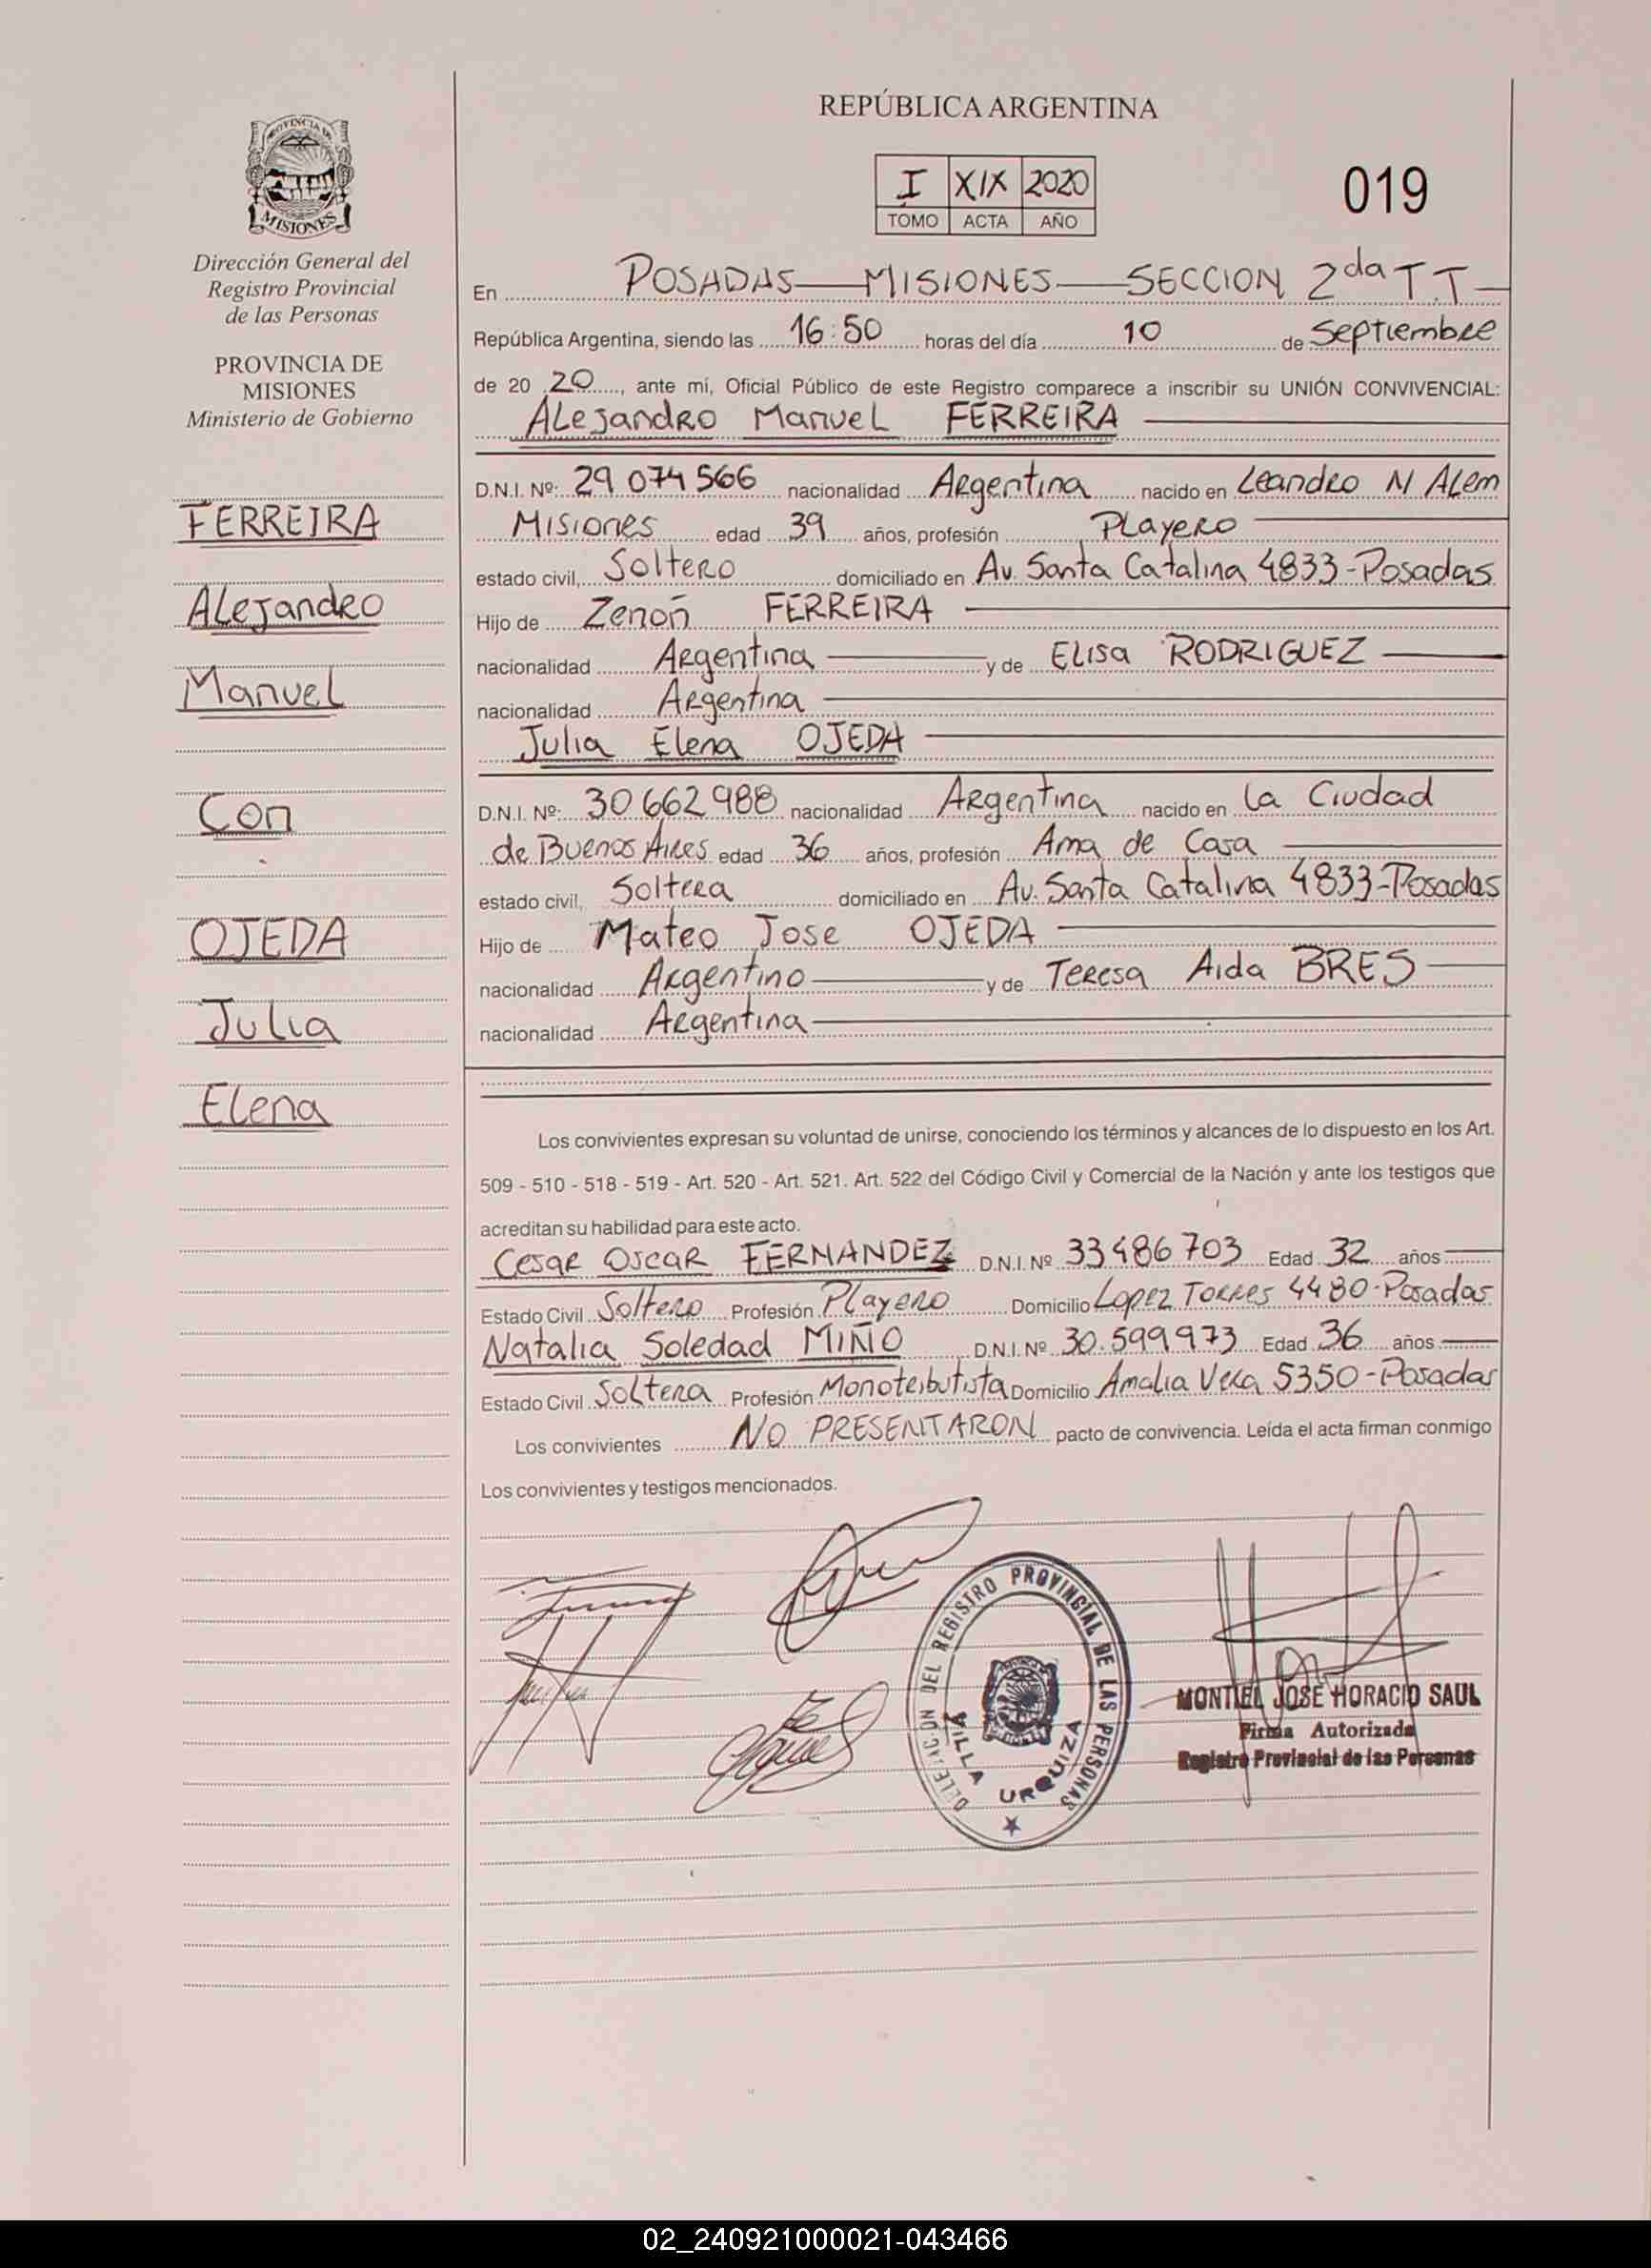 REPÚBLICA ARGENTINA
I XIX 2020
TOMO ACTA AÑO
019
PROVINCIA DE
MISIONES
Dirección General del
Registro Provincial
de las Personas
PROVINCIA DE
MISIONES
Ministerio de Gobierno
FERREIRA
Alejandro
Manuel
Con
OJEDA
Julia
Elena
En POSADAS — MISIONES — SECCION 2da T T —
República Argentina, siendo las 16:50 horas del día 10 de Septiembre
de 20 20, ante mí, Oficial Público de este Registro comparece a inscribir su UNIÓN CONVIVENCIAL:
Alejandro Manuel FERREIRA
D.N.I. Nº: 29 074 566 nacionalidad Argentina nacido en Leandro N Alem
Misiones edad 39 años, profesión Playero
estado civil, Soltero domiciliado en Av. Santa Catalina 4833-Posadas
Hijo de Zenón FERREIRA
nacionalidad Argentina y de Elisa RODRIGUEZ
nacionalidad Argentina
Julia Elena OJEDA
D.N.I. Nº: 30 662 988 nacionalidad Argentina nacido en La Ciudad
de Buenos Aires edad 36 años, profesión Ama de Casa
estado civil, Soltera domiciliado en Av. Santa Catalina 4833-Posadas
Hijo de Mateo Jose OJEDA
nacionalidad Argentino y de Teresa Aida BRES
nacionalidad Argentina
Los convivientes expresan su voluntad de unirse, conociendo los términos y alcances de lo dispuesto en los Art.
509 - 510 - 518 - 519 - Art. 520 - Art. 521. Art. 522 del Código Civil y Comercial de la Nación y ante los testigos que
acreditan su habilidad para este acto.
Cesar Oscar FERNANDEZ D.N.I. Nº 33 486 703 Edad 32 años
Estado Civil Soltero Profesión Playero Domicilio Lopez Torres 4480-Posadas
Natalia Soledad MIÑO D.N.I. Nº 30.599.973 Edad 36 años
Estado Civil Soltera Profesión Monotributista Domicilio Amalia Vera 5350-Posadas
Los convivientes NO PRESENTARON pacto de convivencia. Leída el acta firman conmigo
Los convivientes y testigos mencionados.
DELEGACION DEL REGISTRO PROVINCIAL DE LAS PERSONAS
VILLA URQUIZA
MONTIEL JOSE HORACIO SAUL
Firma Autorizada
Registro Provincial de las Personas
02_240921000021-043466